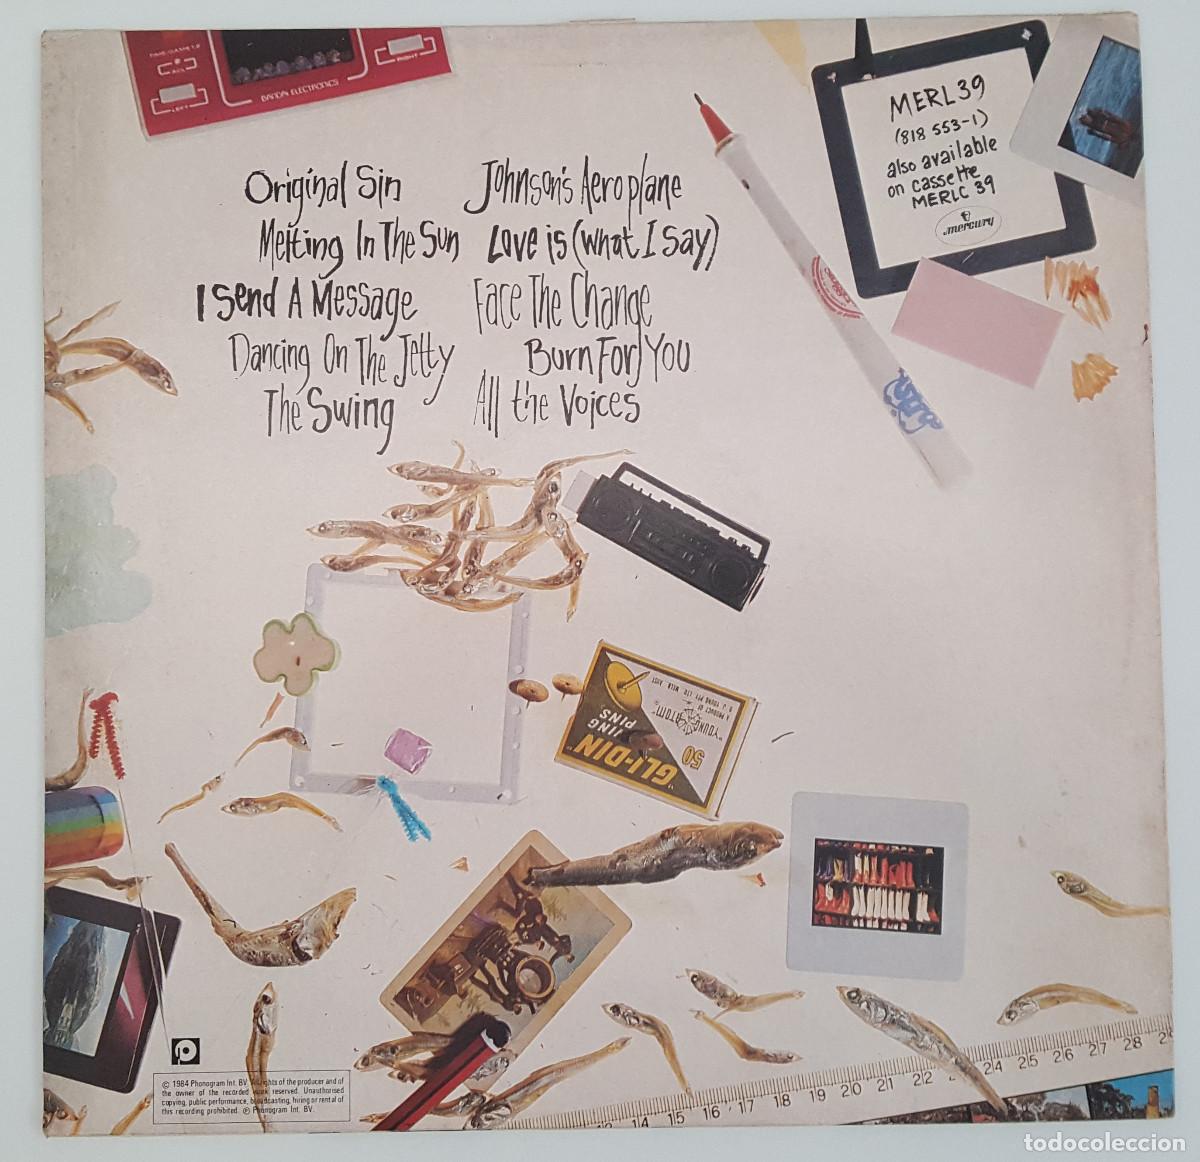 TIME GAME 1.2
ACL
LEFT
RIGHT
BANDAI ELECTRONICS
MERL 39
(818 553-1)
also available
on cassette
MERLC 39
mercury
Original Sin
Melting In The Sun
I Send A Message
Dancing On The Jetty
The Swing
Johnson's Aeroplane
Love is (what I say)
Face The Change
Burn For You
All the Voices
"GLI-DIN"
JING
PINS
50
"YOUNG ATOM"
A PRODUCT OF
D. J YOUNG PTY. LTD. MELB. AUST
14 15 16 17 18 19 20 21 22 24 25 26 27 28 29
© 1984 Phonogram Int. BV. All rights of the producer and of
the owner of the recorded work reserved. Unauthorised
copying, public performance, broadcasting, hiring or rental of
this recording prohibited. ℗ Phonogram Int. BV.
todocoleccion